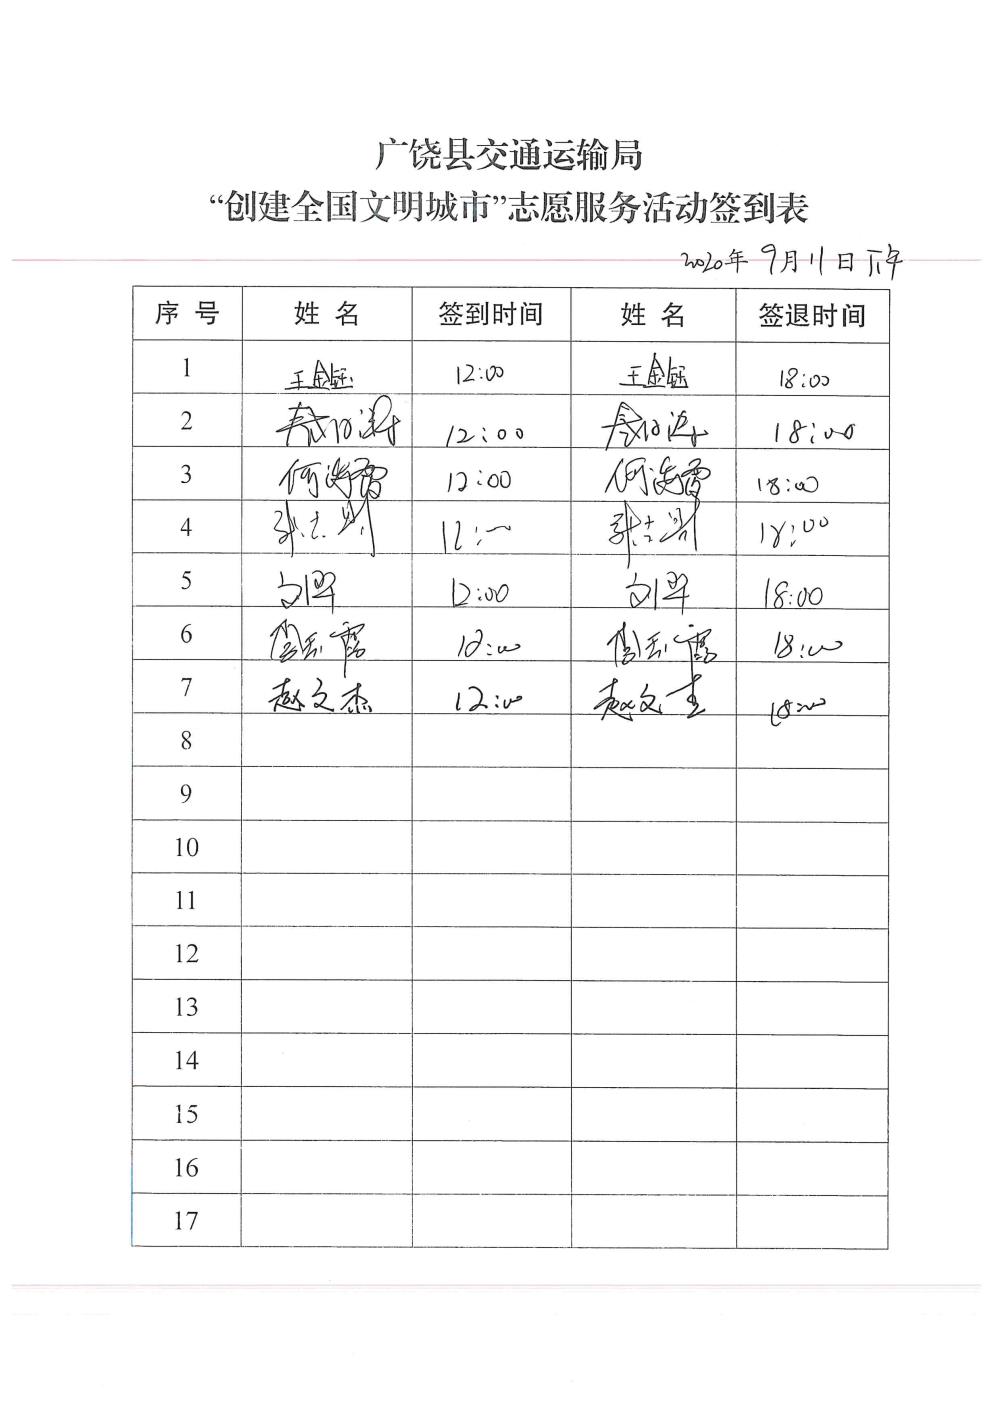 广饶县交通运输局
“创建全国文明城市”志愿服务活动签到表
2020年 9月11日 下午
序 号 姓 名 签到时间 姓 名 签退时间
1 王金钰 12:00 王金钰 18:00
2 12:00 18:00
3 12:00 18:00
4 12:00 18:00
5 刘翠 12:00 刘翠 18:00
6 12:00 18:00
7 赵文杰 12:00 赵文杰 18:00
8
9
10
11
12
13
14
15
16
17